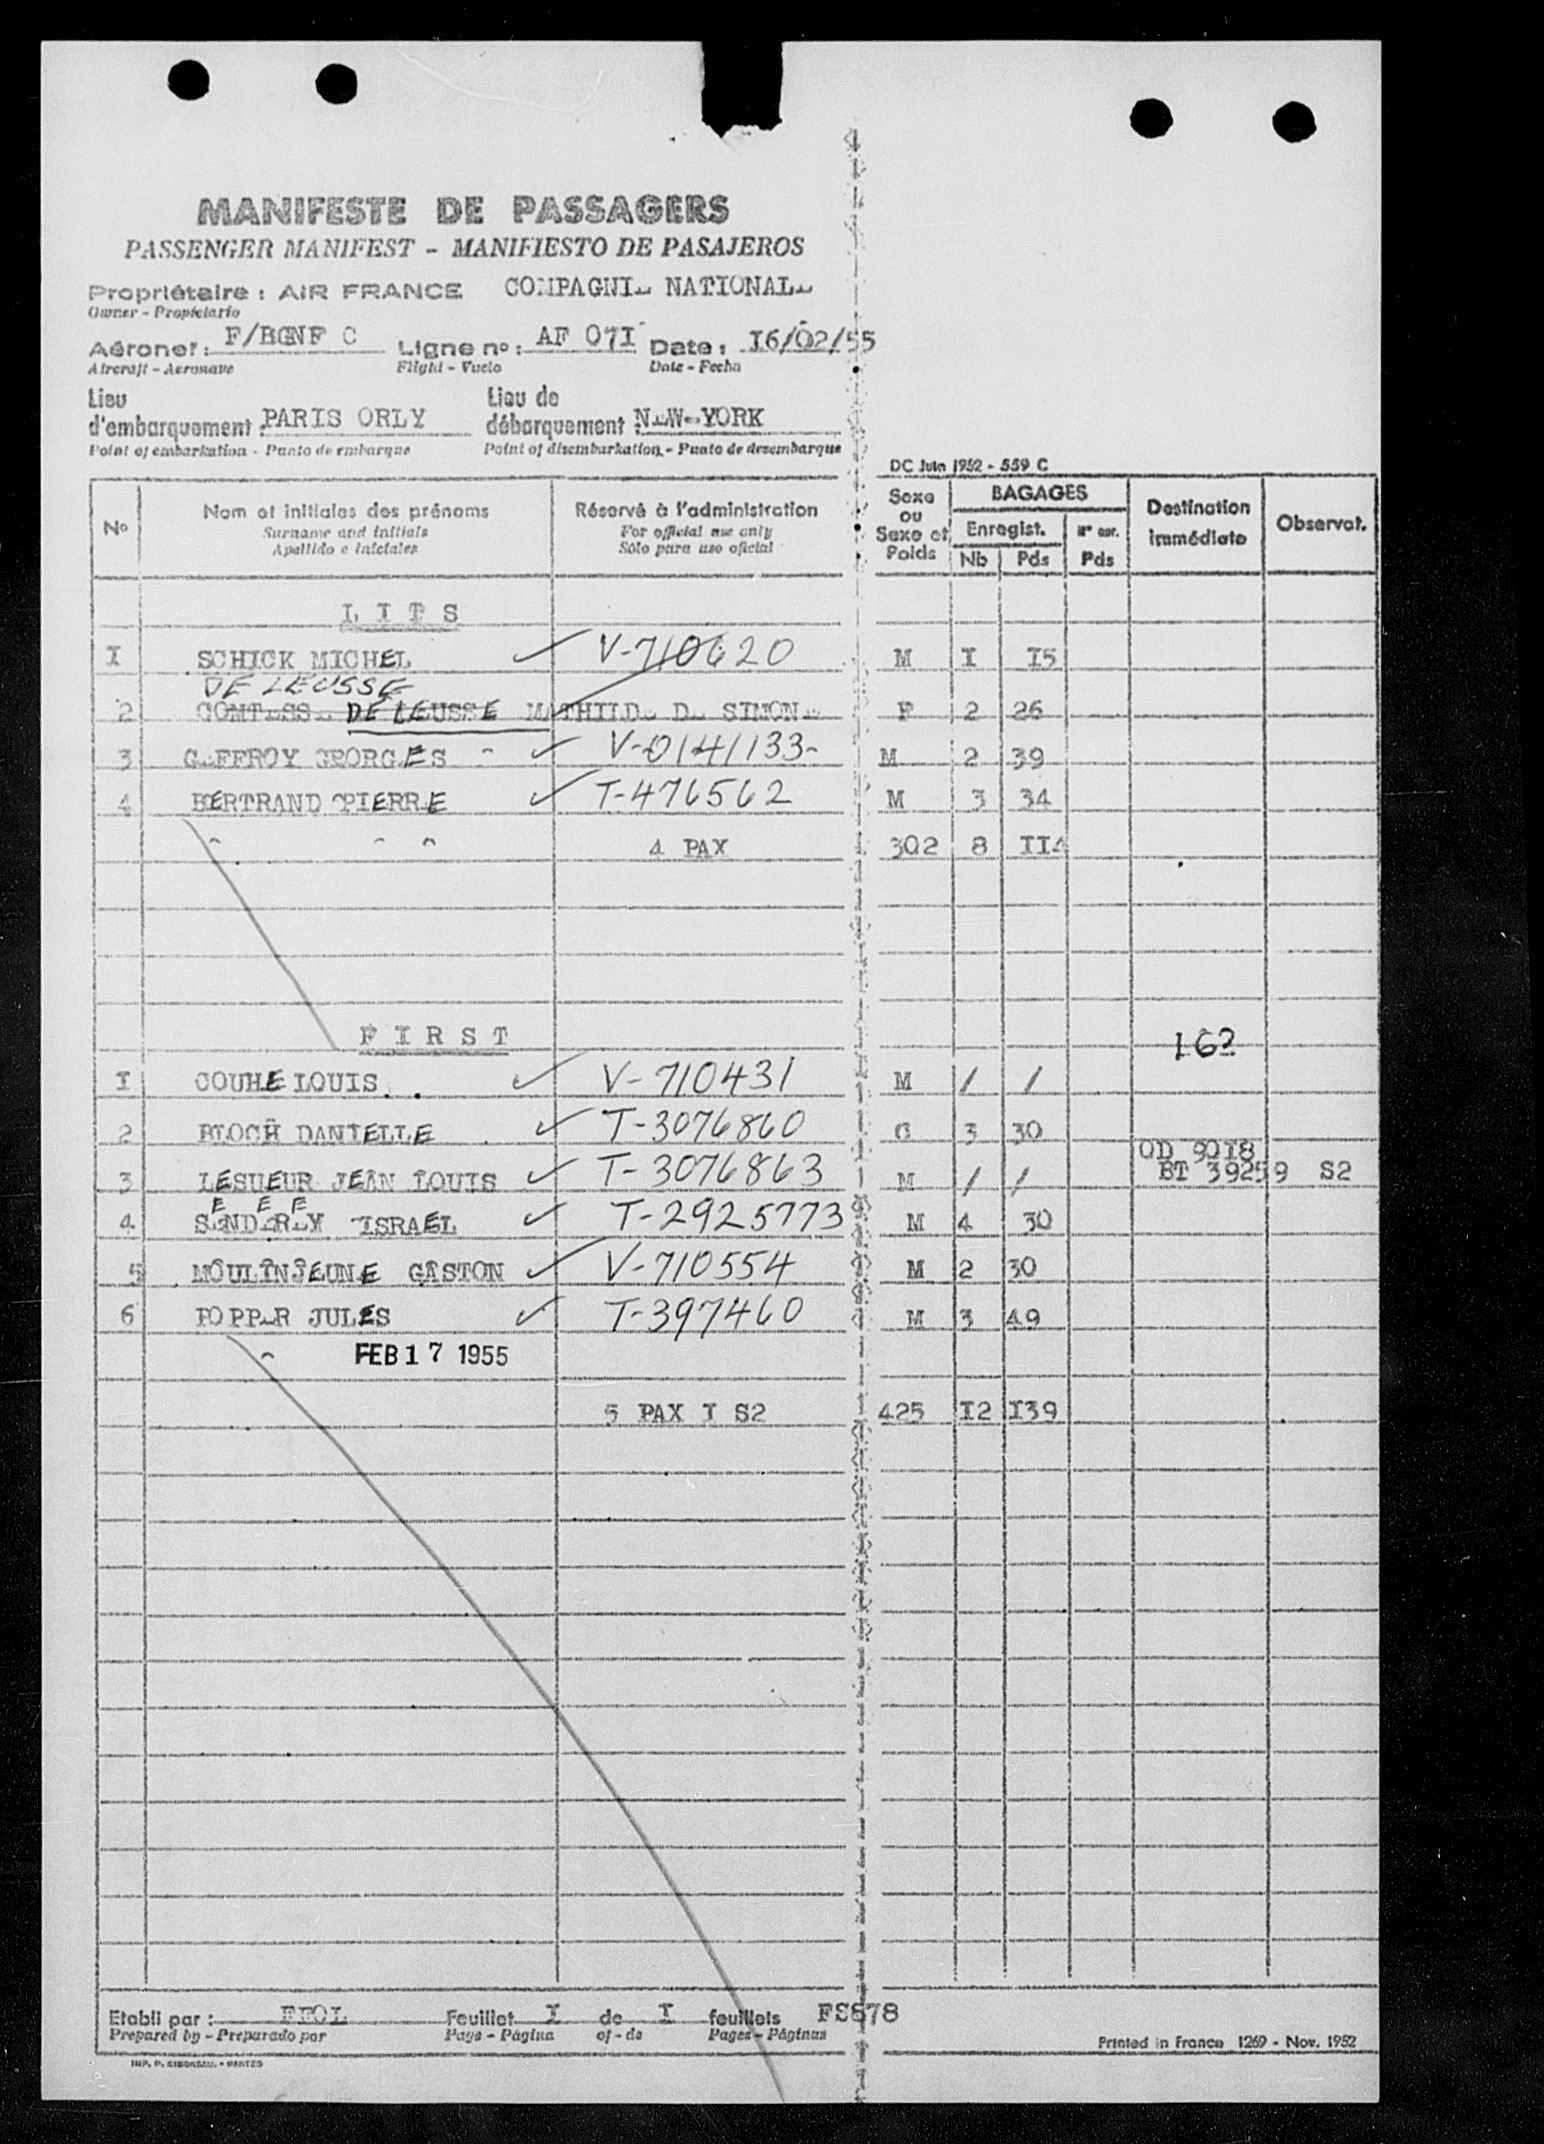 MANIFESTE DE PASSAGERS
PASSENGER MANIFEST - MANIFIESTO DE PASAJEROS
Propriétaire : AIR FRANCE COMPAGNIE NATIONALE
Owner - Propietario
Aéronef : F/BGNF C Ligne nº : AF 07I Date : I6/02/55
Aircraft - Aeronave Flight - Vuelo Date - Fecha
Lieu d'embarquement : PARIS ORLY Lieu de débarquement : NEW-YORK
Point of embarkation - Punto de embarque Point of disembarkation - Punto de desembarque
DC Juin 1952 - 559 C
Nº Nom et initiales des prénoms Réservé à l'administration Sexe ou Sexe et Poids BAGAGES Destination immédiate Observat.
Surname and initials For official use only Enregist. Nº enr.
Apellido e iniciales Sólo para uso oficial Nb Pds Pds
L I T S
I SCHICK MICHEL V-710620 M I I5
DE LEUSSE
2 COMTESSE DE LEUSSE MATHILDE DE SIMONE F 2 26
3 GEFFROY GEORGES V-0141133- M 2 39
4 BERTRAND PIERRE T-476562 M 3 34
4 PAX 302 8 II4
F I R S T 162
I COUHE LOUIS V-710431 M / /
2 BLOCH DANIELLE T-3076860 G 3 30
OD 9018
3 LESUEUR JEAN LOUIS T-3076863 M / / BT 39259 S2
E E E
4 SENDEREY ISRAEL T-2925773 M 4 30
5 MOULINJEUNE GASTON V-710554 M 2 30
6 POPPER JULES T-397460 M 3 49
FEB 17 1955
5 PAX I S2 425 I2 I39
Etabli par : FFOL Feuillet I de I feuillets FS878
Prepared by - Preparado por Page - Página of - de Pages - Páginas
Printed in France 1269 - Nov. 1952